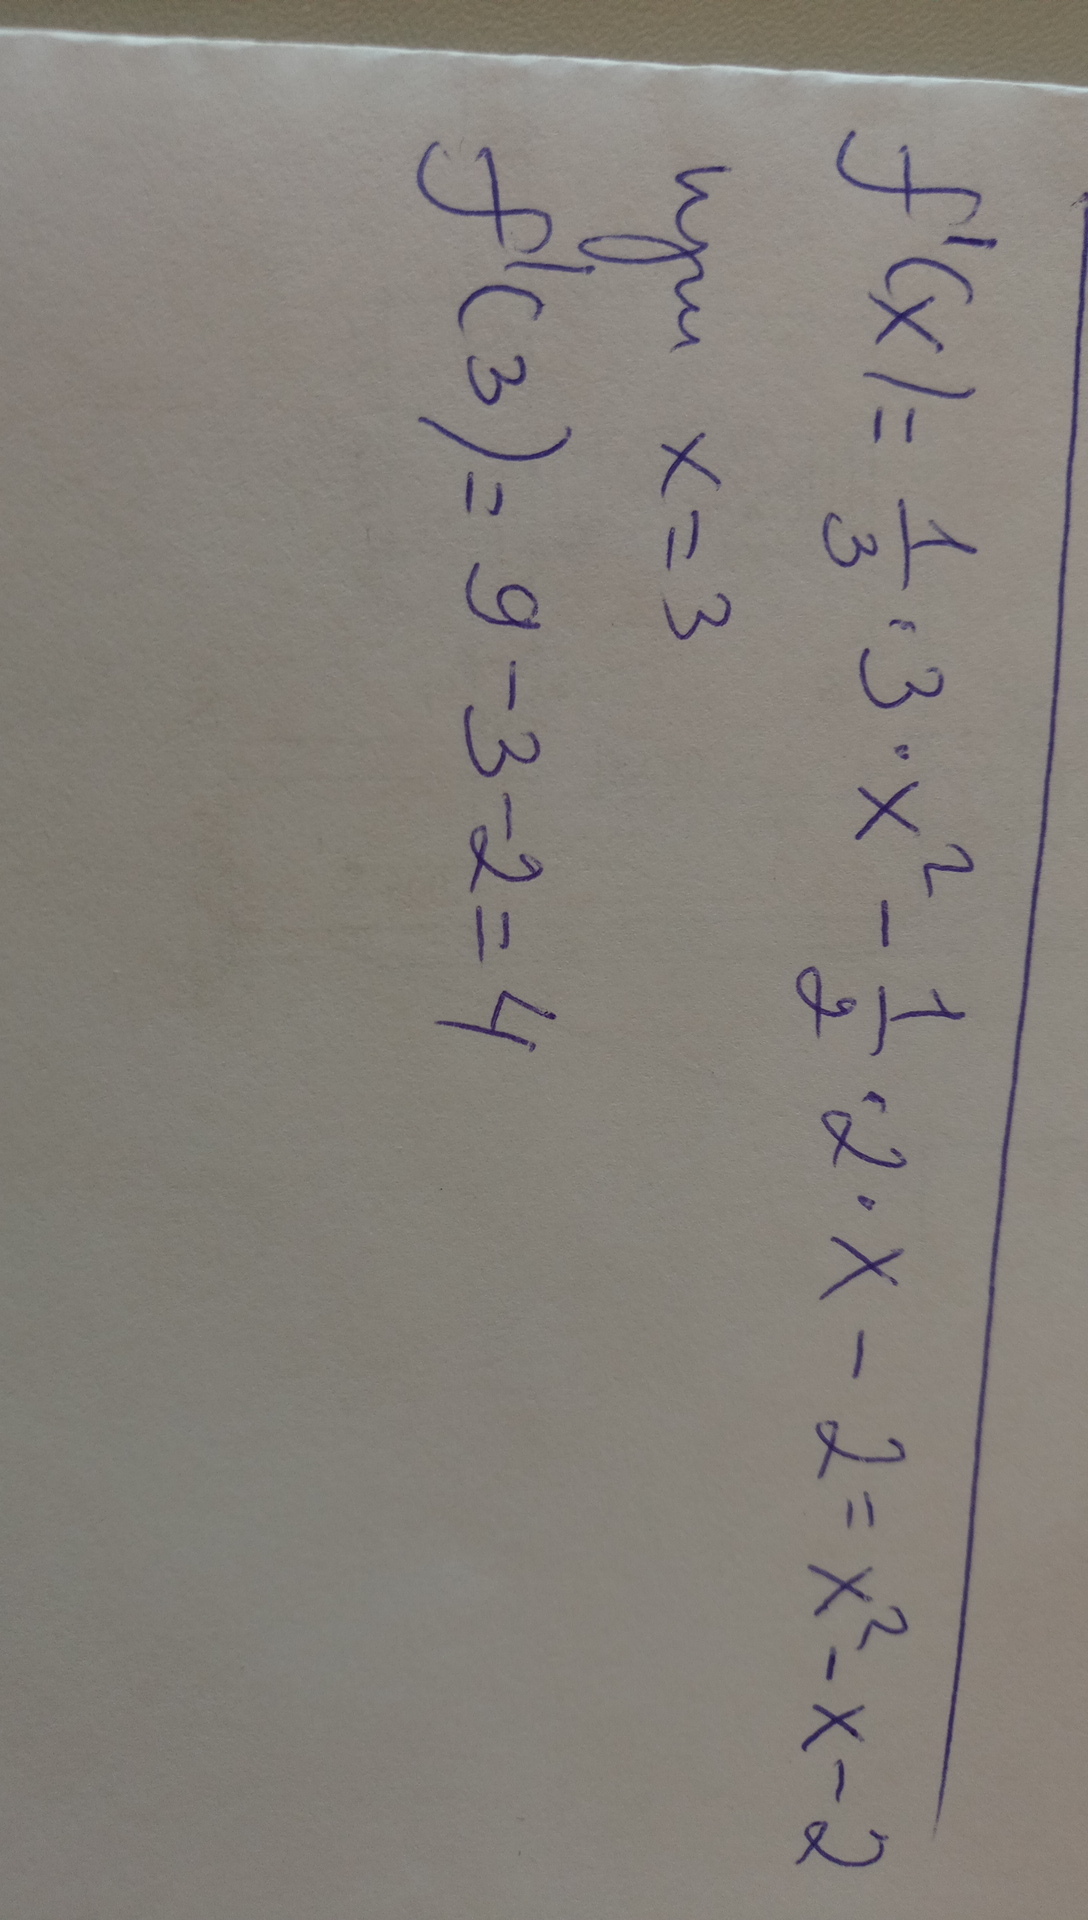 f'(x)=1/3·3·x²-1/2·2·x-2=x²-x-2
при x=3
f'(3)=9-3-2=4